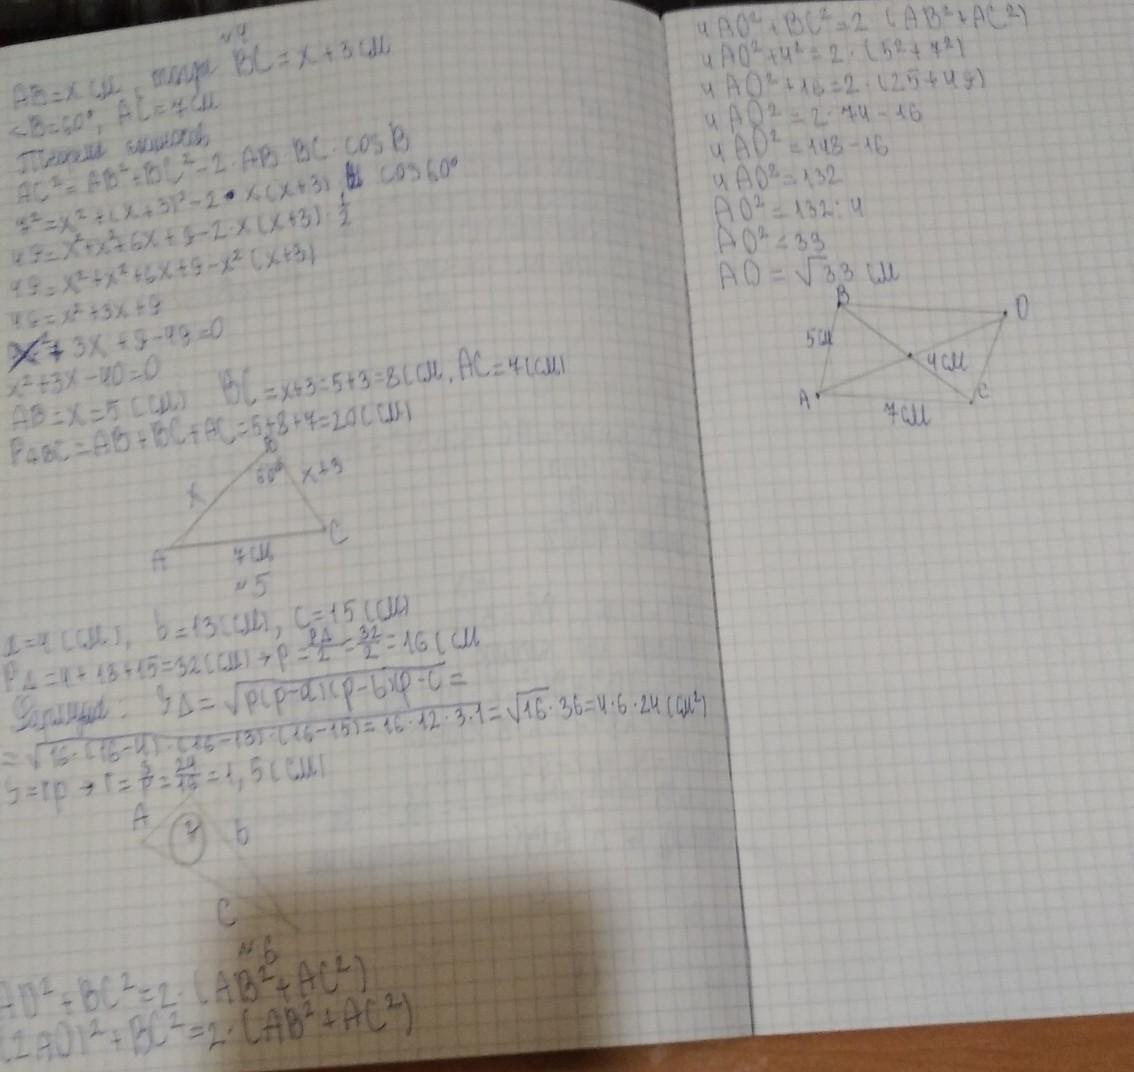 №4
AB=x см, тогда BC=x+3 см
<B=60°, AC=7см
Теорема синусов
AC²=AB²+BC²-2·AB·BC·cosB
7²=x²+(x+3)²-2·x(x+3) cos60°
49=x²+x²+6x+9-2·x(x+3)·1/2
49=x²+x²+6x+9-x²(x+3)
49=x²+3x+9
3x+9-49=0
x²+3x-40=0
AB=x=5(см) BC=x+3=5+3=8(см, AC=7(см)
P△BC=AB+BC+AC=5+8+7=20(см)
B
60°
x
x+3
A
7см
C
№5
a=4(см), b=13(см), c=15(см)
P△=4+13+15=32(см)→p=P△/2=32/2=16(см
Формула: S△=√p(p-a)(p-b)(p-c=
=√16·(16-4)·(16-13)·(16-15)=16·12·3·1=√16·36=4·6·24(см²)
S=rp→r=S/p=24/16=1,5(см)
A
b
C
№6
AD²+BC²=2·(AB²+AC²)
(2AO)²+BC²=2·(AB²+AC²)
4AO²+BC²=2·(AB²+AC²)
4AO²+4²=2·(5²+7²)
4AO²+16=2·(25+49)
4AO²=2·74-16
4AO²=148-16
4AO²=132
AO²=132:4
AO²=33
AO=√33 см
B
D
5см
4см
A
7см
C